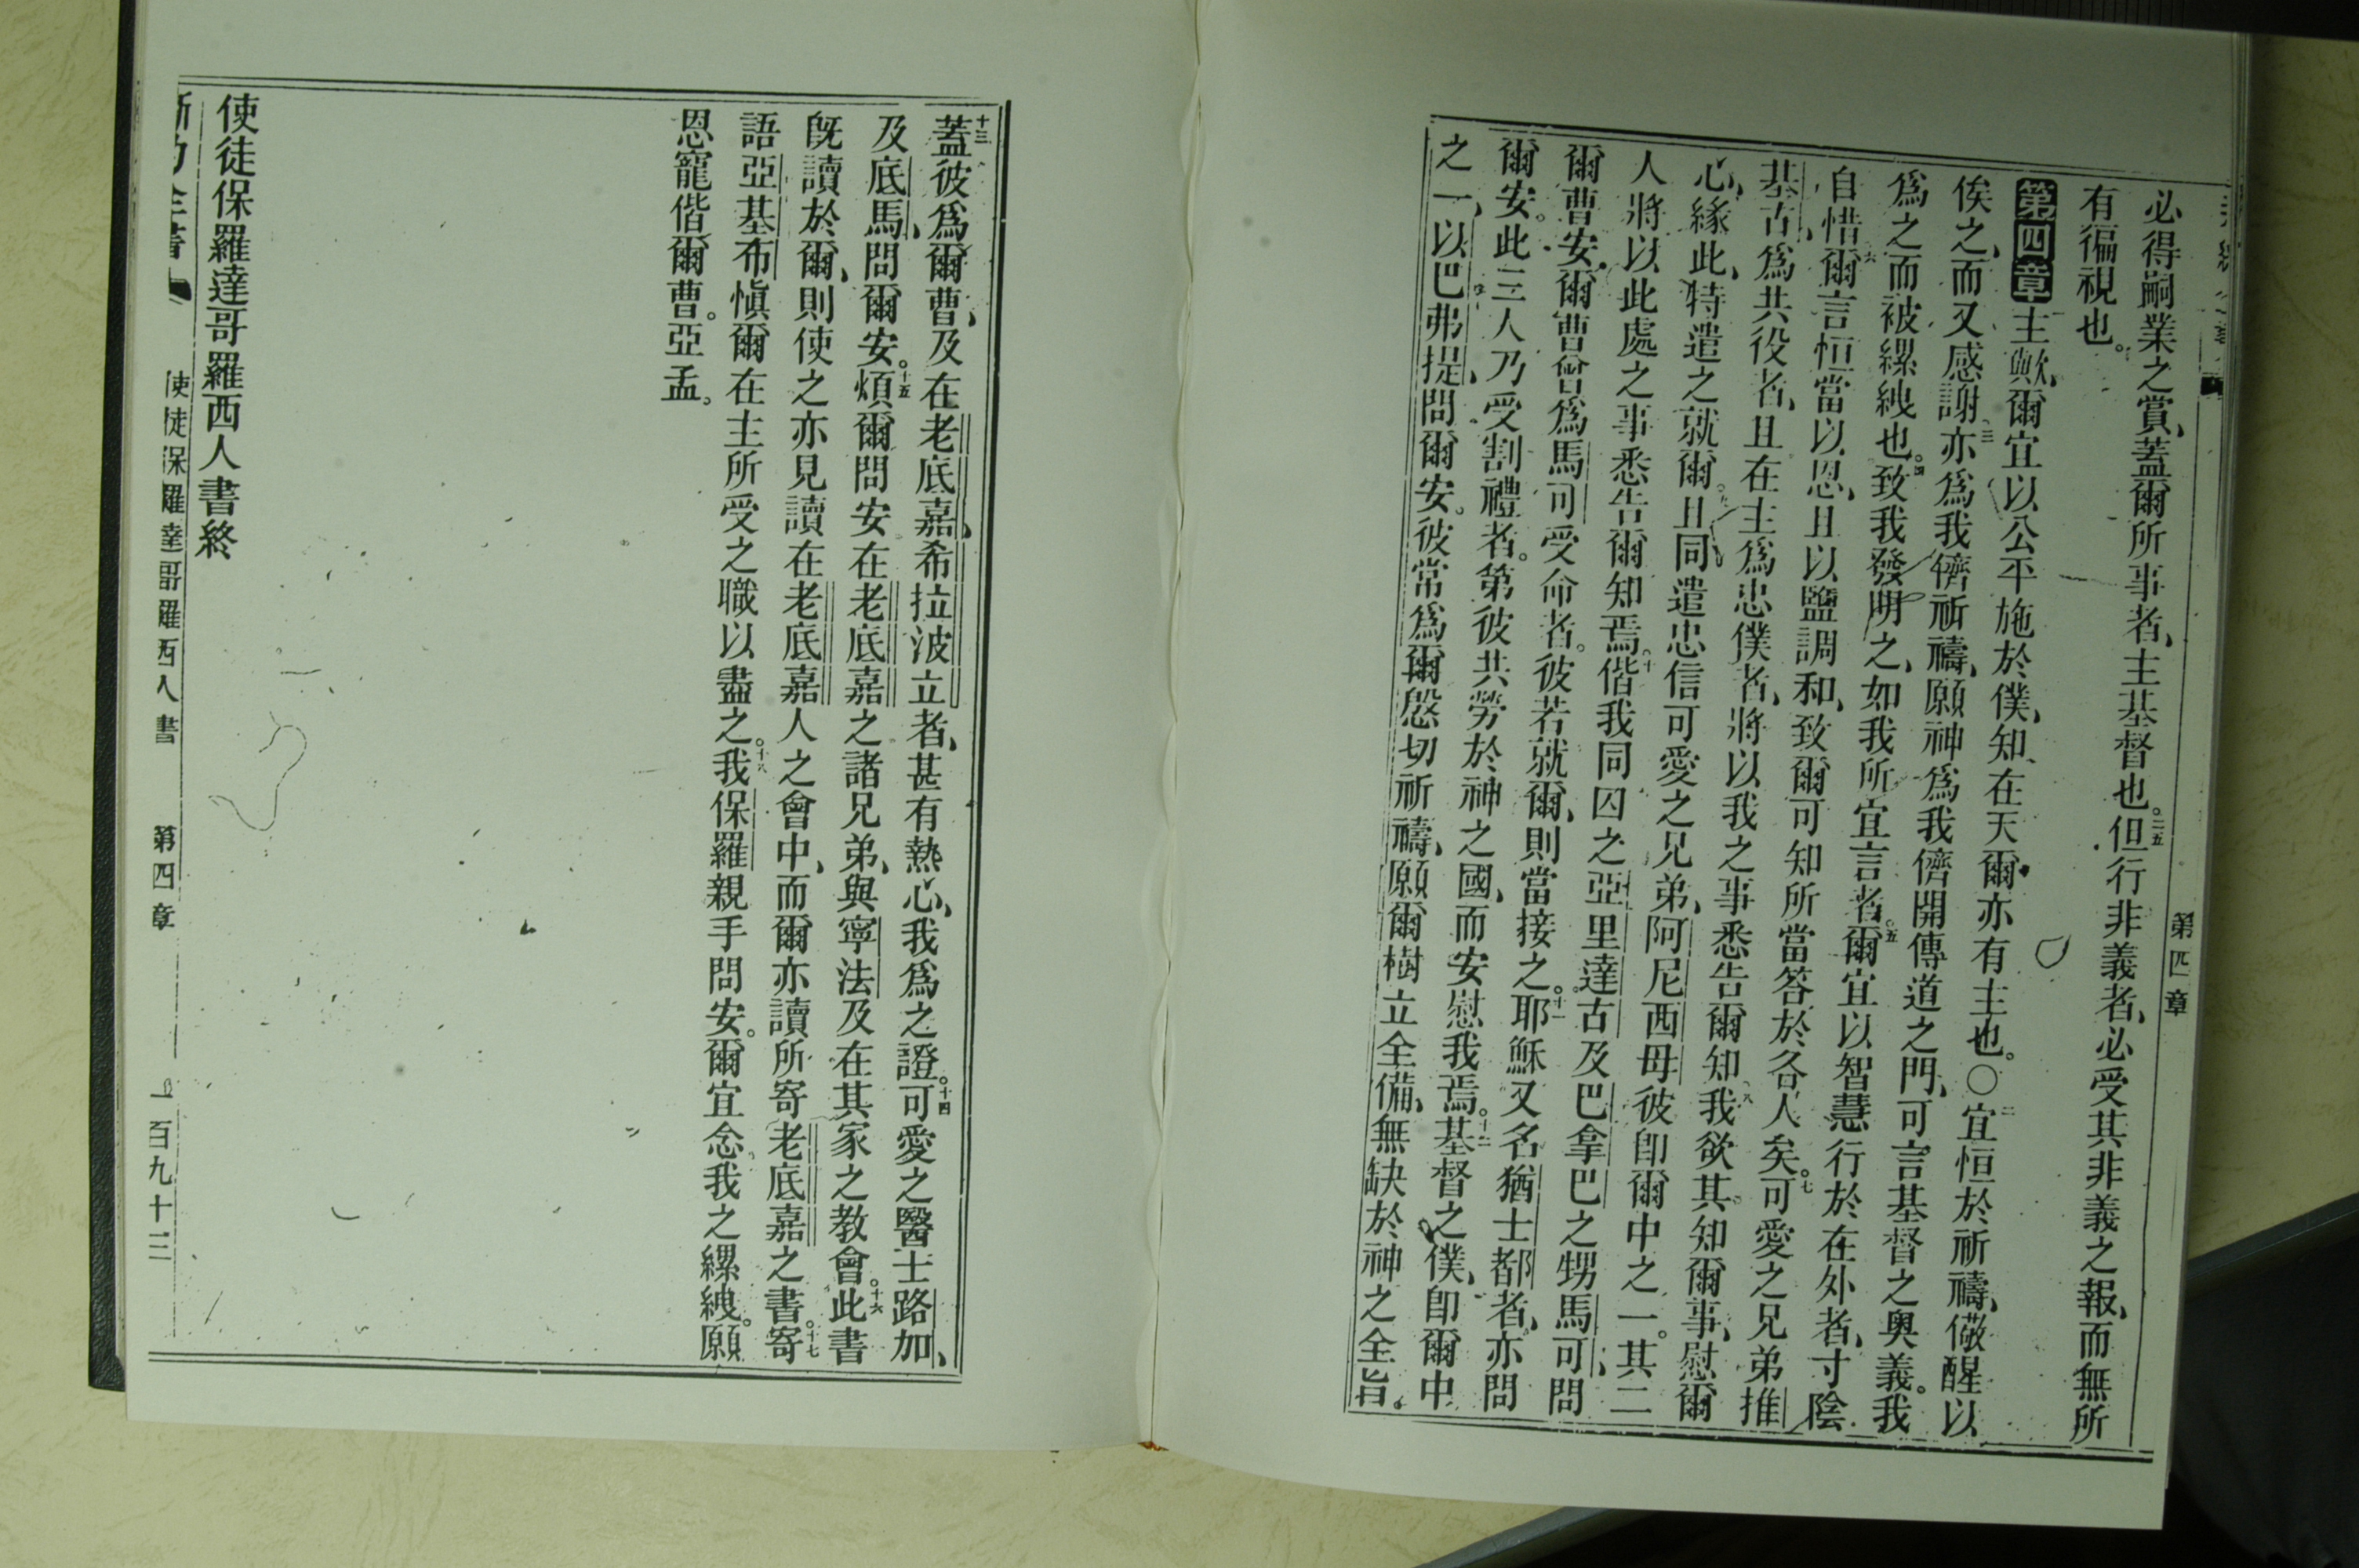 第四章
必得嗣業之賞、蓋爾所事者、主基督也。二五但行非義者、必受其非義之報、而無所
有徧視也。
第四章主歟、爾宜以公平施於僕、知在天爾亦有主也。○二宜恒於祈禱、儆醒以
俟之、而又感謝、三亦為我儕祈禱、願神為我儕開傳道之門、可言基督之奧義。我
為之而被縲絏也。四致我發明之、如我所宜言者。五爾宜以智慧行於在外者、寸陰
自惜。六爾言恒當以恩、且以鹽調和、致爾可知所當答於各人矣。七可愛之兄弟推
基古、為共役者、且在主為忠僕者、將以我之事悉告爾知、八我欲其知爾事、慰爾
心、緣此、特遣之就爾。九且同遣忠信可愛之兄弟、阿尼西母、彼即爾中之一。其二
人將以此處之事悉告爾知焉。十偕我同囚之亞里達古及巴拿巴之甥馬可、問
爾曹安、爾曹曾為馬可受命者。彼若就爾、則當接之。十一耶穌又名猶士都者、亦問
爾安。此三人乃受割禮者。第彼共勞於神之國、而安慰我焉。十二基督之僕、即爾中
之一、以巴弗提、問爾安。彼常為爾慇切祈禱、願爾樹立全備、無缺於神之全旨。
十三蓋彼為爾曹、及在老底嘉、希拉波立者、甚有熱心、我為之證。十四可愛之醫士路加、
及底馬、問爾安。十五煩爾問安在老底嘉之諸兄弟、與寧法及在其家之教會。十六此書
既讀於爾、則使之亦見讀在老底嘉人之會中、而爾亦讀所寄老底嘉之書。十七寄
語亞基布、慎爾在主所受之職以盡之。十八我保羅親手問安。爾宜念我之縲絏。願
恩寵偕爾曹。亞孟。
使徒保羅達哥羅西人書終
使徒保羅達哥羅西人書 第四章 百九十三